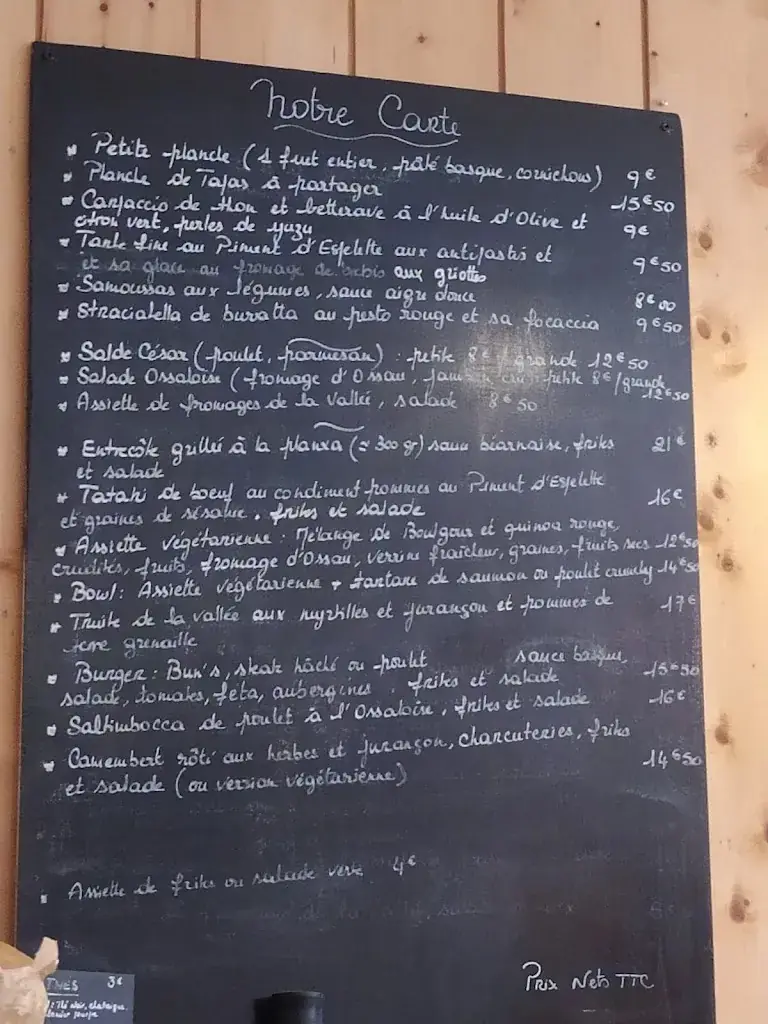 Notre Carte
Petite planche (1 fuet entier, pâté basque, cornichons) 9€
Planche de Tapas à partager 15€50
Carpaccio de thon et betterave à l'huile d'Olive et
citron vert, perles de yuzu 9€
Tarte fine au Piment d'Espelette aux antipastis et
et sa glace au fromage de brebis aux griottes 9€50
Samoussas aux légumes, sauce aigre douce 8€00
Stracialella de buratta au pesto rouge et sa focaccia 9€50
Salde César (poulet, parmesan) : petite 8€ / grande 12€50
Salade Ossaloise (fromage d'Ossau, jambon cru) : petite 8€ / grande
12€50
Assiette de fromages de la Vallée, salade 8€50
Entrecôte grillée à la planxa (≈ 300 gr) sauce béarnaise, frites 21€
et salade
Tataki de boeuf au condiment pommes au Piment d'Espelette
et graines de sésame, frites et salade 16€
Assiette végétarienne : Mélange de Boulgour et quinoa rouge,
crudités, fruits, fromage d'Ossau, verrine fraîcheur, graines, fruits secs 12€50
Bowl : Assiette végétarienne + tartare de saumon ou poulet crunchy 14€50
Truite de la vallée aux myrtilles et jurançon et pommes de 17€
terre grenaille
Burger : Bun's, steak hâché ou poulet sauce basque,
salade, tomates, feta, aubergines, frites et salade 15€50
Saltimbocca de poulet à l'Ossaloise, frites et salade 16€
Camembert rôti aux herbes et jurançon, charcuteries, frites
et salade (ou version végétarienne) 14€50
Assiette de frites ou salade verte 4€
Prix Nets TTC
THES 3€
: Thé noir, classique